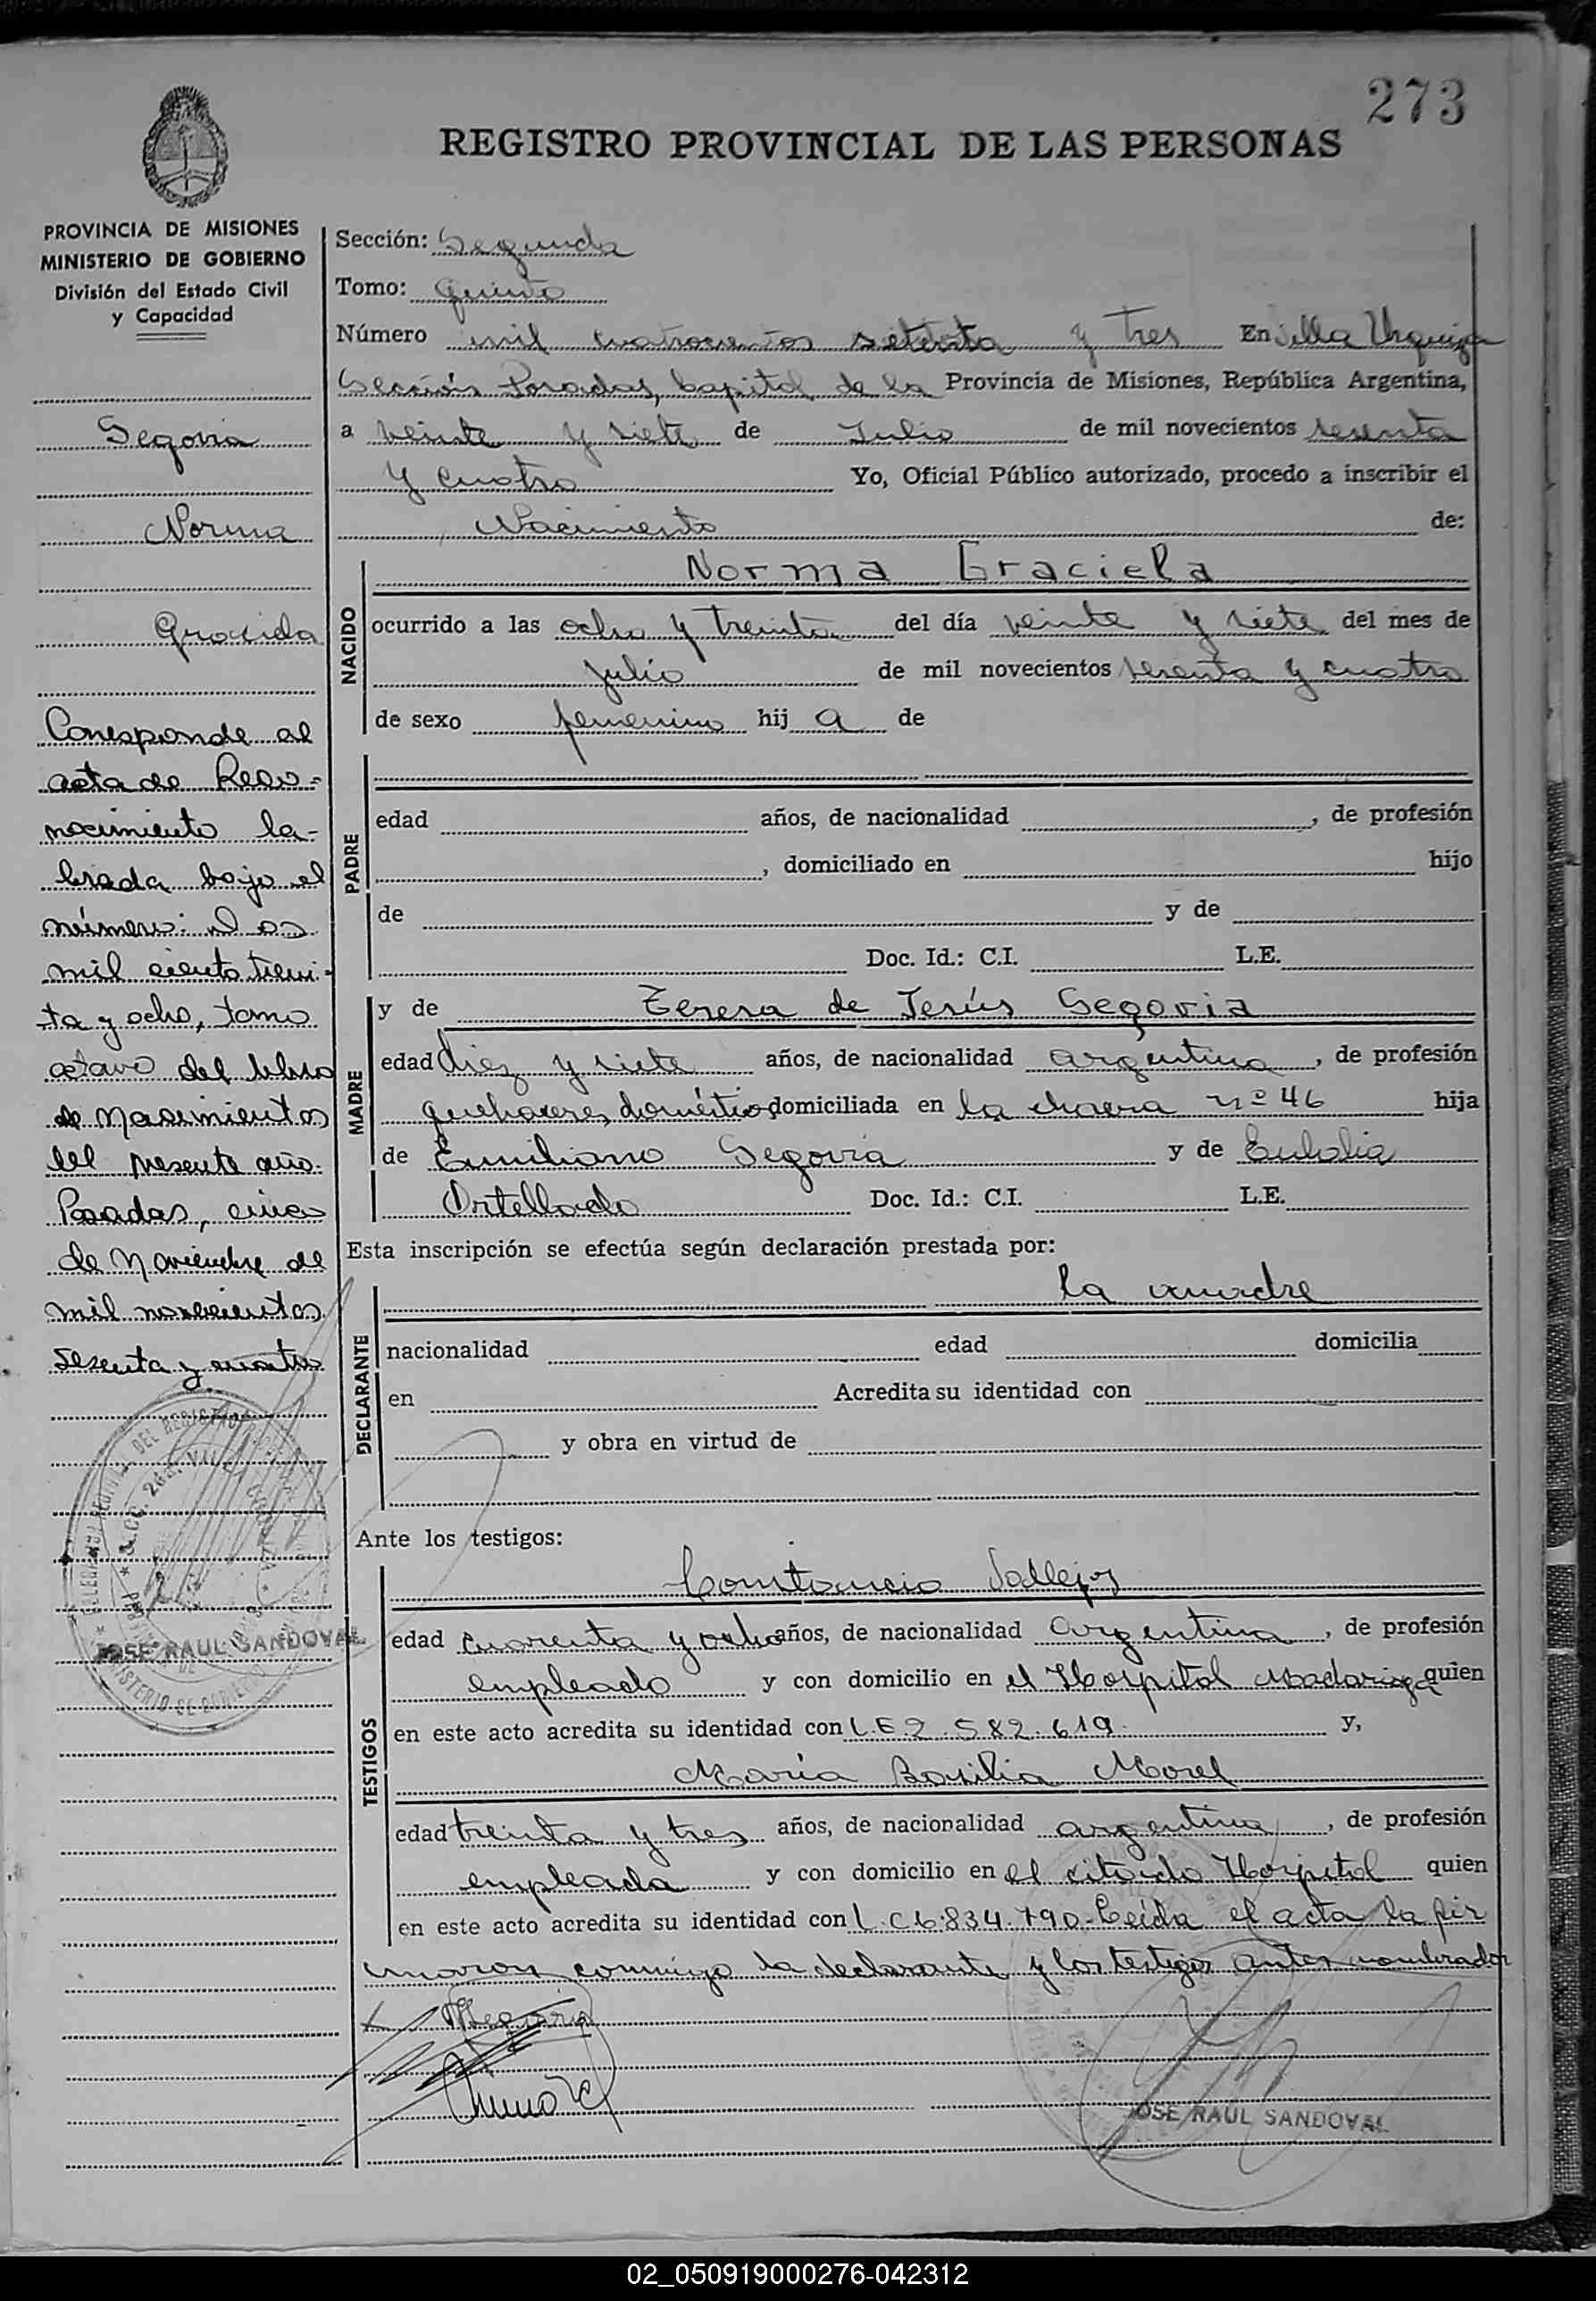 273
REGISTRO PROVINCIAL DE LAS PERSONAS
PROVINCIA DE MISIONES
MINISTERIO DE GOBIERNO
División del Estado Civil
y Capacidad
Segovia
Norma
Graciela
Corresponde al
acta de Reco-
nocimiento la-
brada bajo el
número: Dos
mil ciento trein-
ta y ocho, tomo
octavo del libro
de Nacimientos
del presente año.
Posadas, cinco
de Noviembre de
mil novecientos
sesenta y cuatro
JOSE RAUL SANDOVAL
Sección: Segunda
Tomo: Quinto
Número mil cuatrocientos setenta y tres En Villa Urquiza
Sección Posadas, Capital de la Provincia de Misiones, República Argentina,
a veinte y siete de Julio de mil novecientos sesenta
y cuatro Yo, Oficial Público autorizado, procedo a inscribir el
Nacimiento de:
NACIDO
Norma Graciela
ocurrido a las ocho y treinta del día veinte y siete del mes de
julio de mil novecientos sesenta y cuatro
de sexo femenino hij a de
PADRE
edad años, de nacionalidad , de profesión
, domiciliado en hijo
de y de
Doc. Id.: C.I. L.E.
MADRE
y de Teresa de Jesús Segovia
edad diez y siete años, de nacionalidad argentina, de profesión
quehaceres domésticos domiciliada en la chacra nº 46 hija
de Emiliano Segovia y de Eulalia
Ortellado Doc. Id.: C.I. L.E.
Esta inscripción se efectúa según declaración prestada por:
DECLARANTE
la madre
nacionalidad edad domicilia
en Acredita su identidad con
y obra en virtud de
Ante los testigos:
TESTIGOS
Constancio Vallejos
edad cuarenta y ocho años, de nacionalidad argentina, de profesión
empleado y con domicilio en el Hospital Madariaga quien
en este acto acredita su identidad con L.E 2.582.619. y,
María Basilia Morel
edad treinta y tres años, de nacionalidad argentina, de profesión
empleada y con domicilio en el citado Hospital quien
en este acto acredita su identidad con L.C 6.834.790- Leída el acta la fir
maron conmigo la declarante y los testigos antes nombrados
JOSE RAUL SANDOVAL
02_050919000276-042312